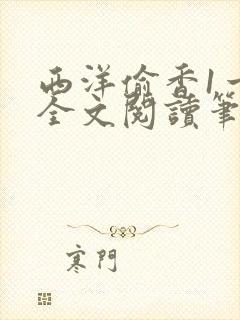 西洋偷香1一
全文閱讀筆
寒門